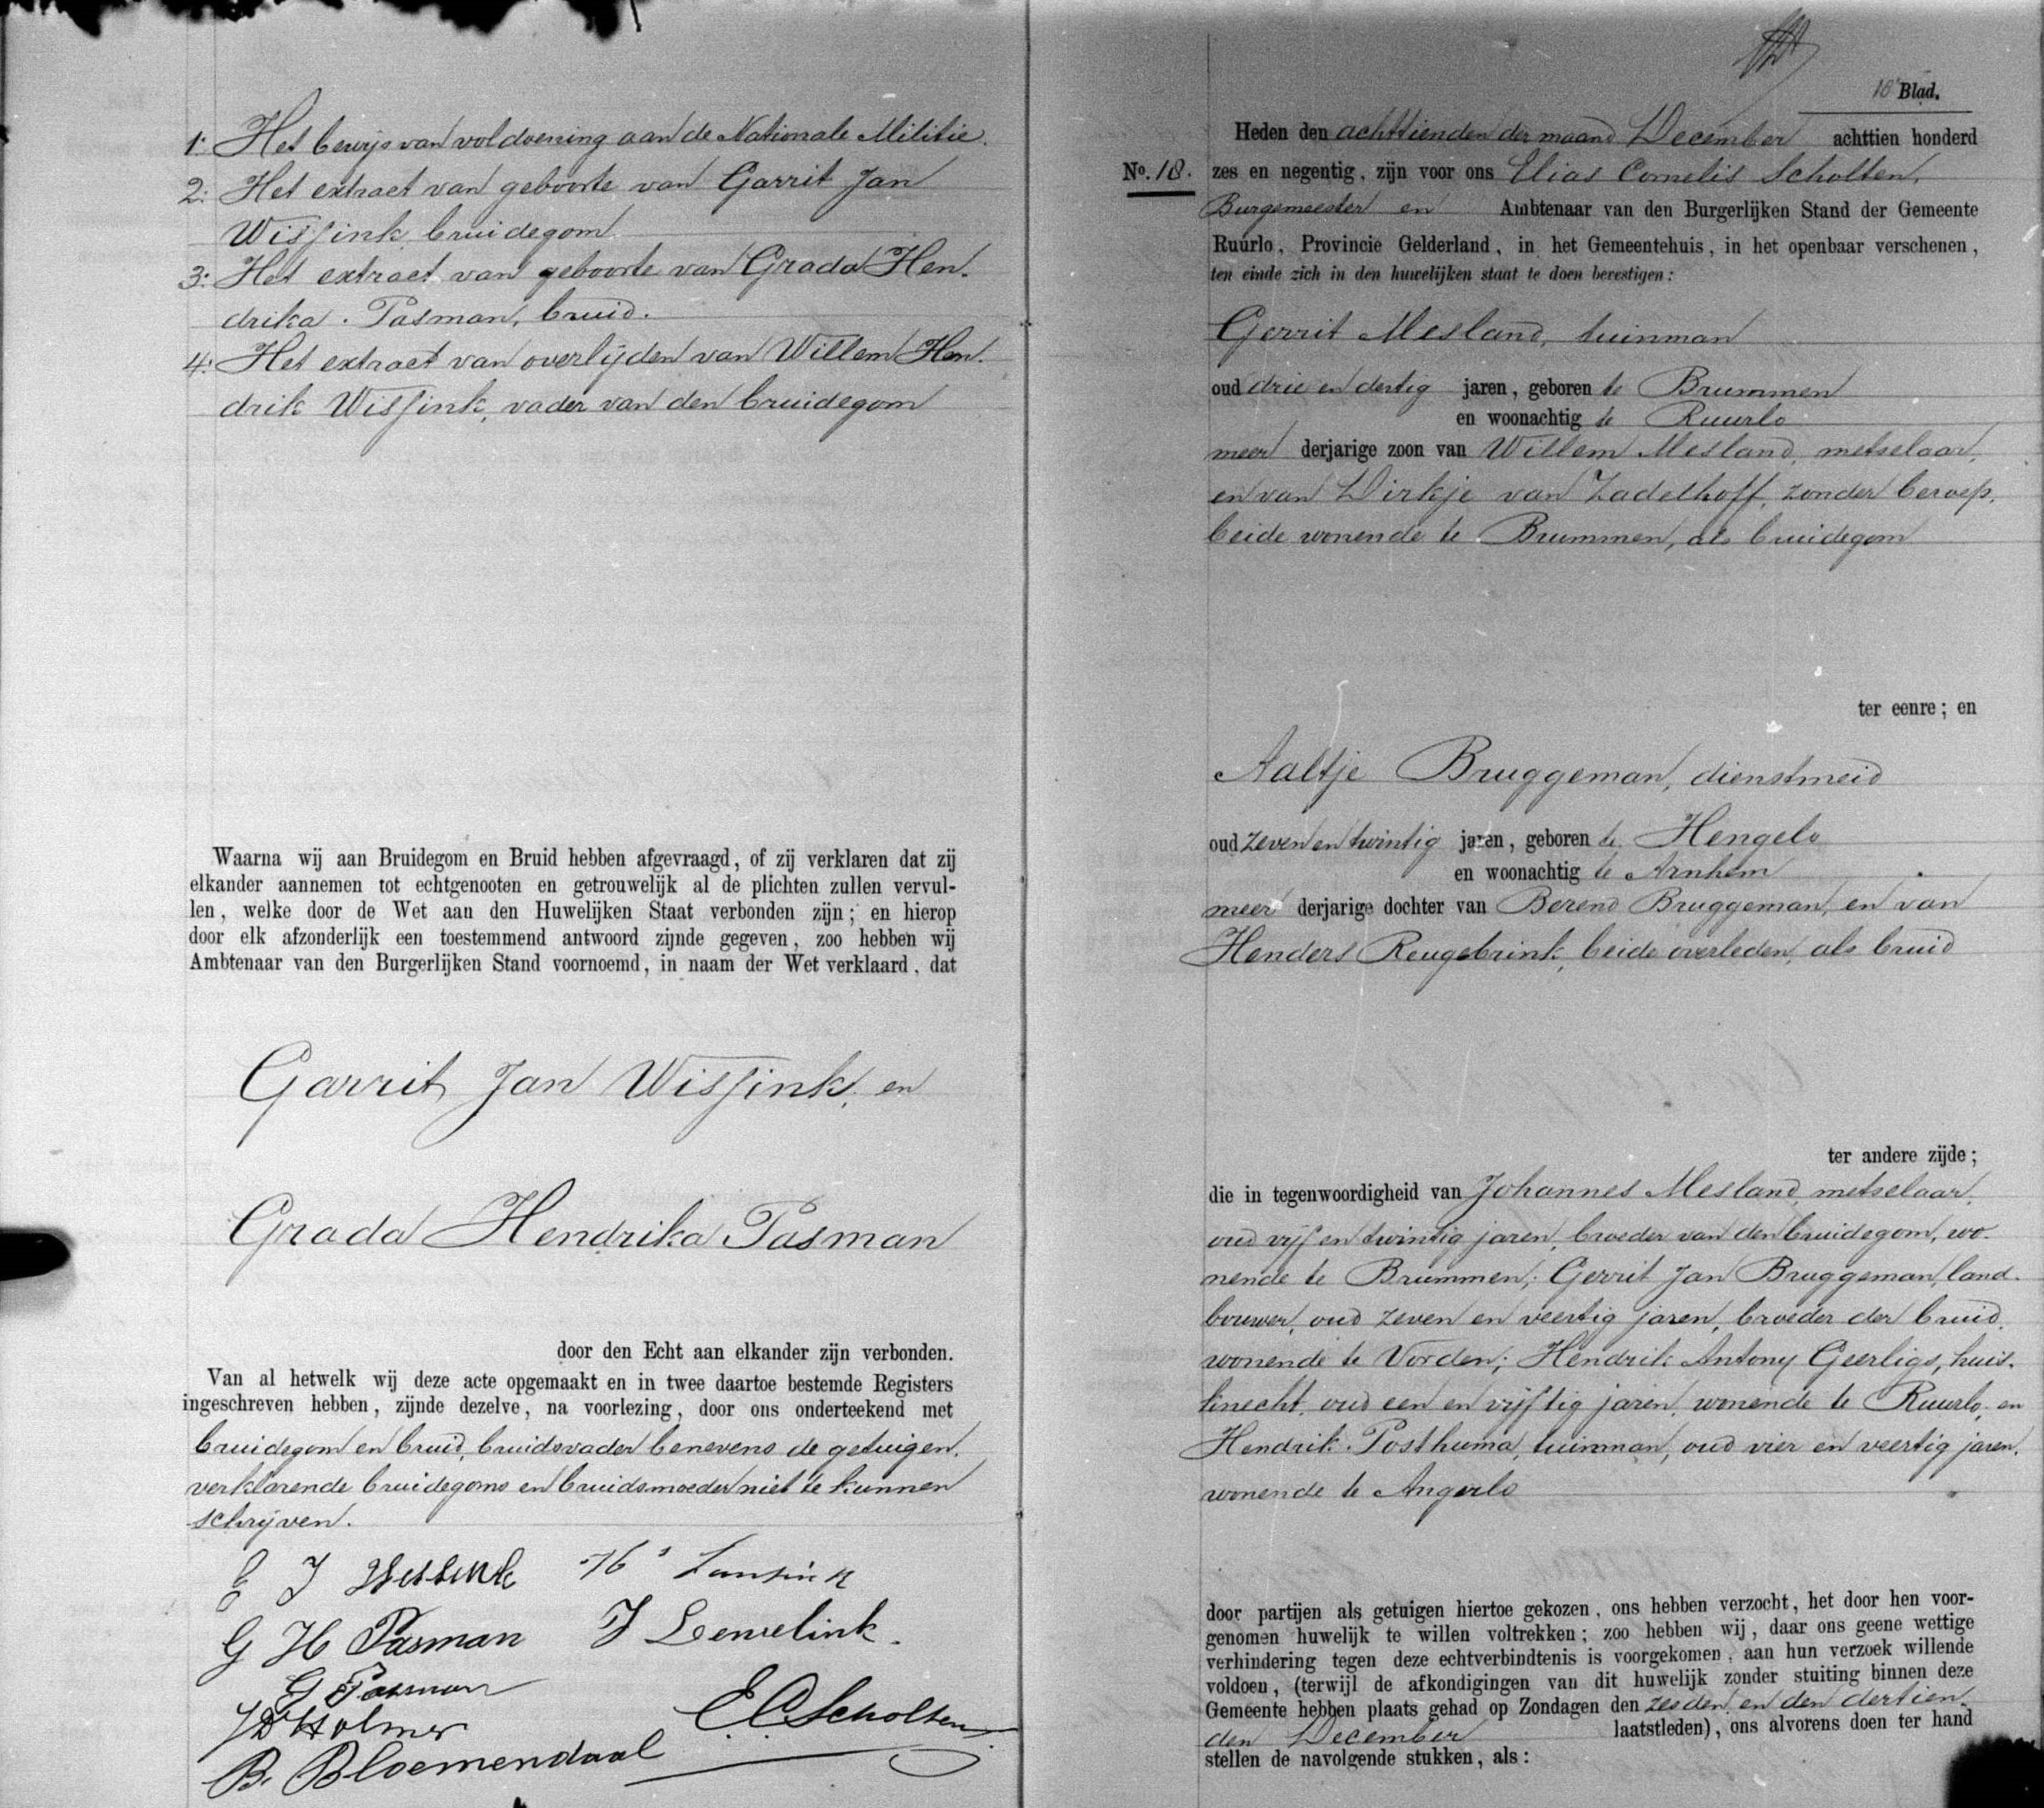 1: Het bewijs van voldoening aan de Nationale Militie.
2: Het extract van geboorte van Garrit Jan
Wissink, bruidegom
3: Het extract van geboorte van Grada Hen-
drika Pasman, bruid.
4: Het extract van overlijden van Willem Hen-
drik Wissink, vader van den bruidegom
Waarna wij aan Bruidegom en Bruid hebben afgevraagd, of zij verklaren dat zij
elkander aannemen tot echtgenooten en getrouwelijk al de plichten zullen vervul-
len, welke door de Wet aan den Huwelijken Staat verbonden zijn; en hierop
door elk afzonderlijk een toestemmend antwoord zijnde gegeven, zoo hebben wij
Ambtenaar van den Burgerlijken Stand voornoemd, in naam der Wet verklaard, dat
Garrit Jan Wissink, en
Grada Hendrika Pasman
door den Echt aan elkander zijn verbonden.
Van al hetwelk wij deze acte opgemaakt en in twee daartoe bestemde Registers
ingeschreven hebben, zijnde dezelve, na voorlezing, door ons onderteekend met
bruidegom en bruid, bruidsvader benevens de getuigen,
verklarende bruidegoms en bruidsmoeder niet te kunnen
schrijven.
G J Wissink
Hs Lansink
G H Pasman
J Lenselink.
G Pasman
JD Holmer
EC Scholten
B. Bloemendaal
18e Blad.
Heden den achttienden der maand December achttien honderd
No. 18. zes en negentig, zijn voor ons Elias Cornelis Scholten,
Burgemeester en Ambtenaar van den Burgerlijken Stand der Gemeente
Ruurlo, Provincie Gelderland, in het Gemeentehuis, in het openbaar verschenen,
ten einde zich in den huwelijken staat te doen bevestigen:
Gerrit Mesland, tuinman
oud drie en dertig jaren, geboren te Brummen
en woonachtig te Ruurlo
meer derjarige zoon van Willem Mesland, metselaar,
en van Dirkje van Zadelhoff, zonder beroep,
beide wonende te Brummen, als bruidegom
ter eenre; en
Aaltje Bruggeman, dienstmeid
oud zeven en twintig jaren, geboren te Hengelo
en woonachtig te Arnhem
meer derjarige dochter van Berend Bruggeman, en van
Henders Reugebrink, beide overleden, als bruid
ter andere zijde;
die in tegenwoordigheid van Johannes Mesland, metselaar,
oud vijf en twintig jaren, broeder van den bruidegom, wo-
nende te Brummen; Gerrit Jan Bruggeman, land-
bouwer, oud zeven en veertig jaren, broeder der bruid,
wonende te Vorden; Hendrik Antony Geerligs, huis-
knecht, oud een en vijftig jaren, wonende te Ruurlo, en
Hendrik Posthuma, tuinman, oud vier en veertig jaren,
wonende te Angerlo
door partijen als getuigen hiertoe gekozen, ons hebben verzocht, het door hen voor-
genomen huwelijk te willen voltrekken; zoo hebben wij, daar ons geene wettige
verhindering tegen deze echtverbindtenis is voorgekomen, aan hun verzoek willende
voldoen, (terwijl de afkondigingen van dit huwelijk zonder stuiting binnen deze
Gemeente hebben plaats gehad op Zondagen den zesden en den dertien-
den December laatstleden), ons alvorens doen ter hand
stellen de navolgende stukken, als: